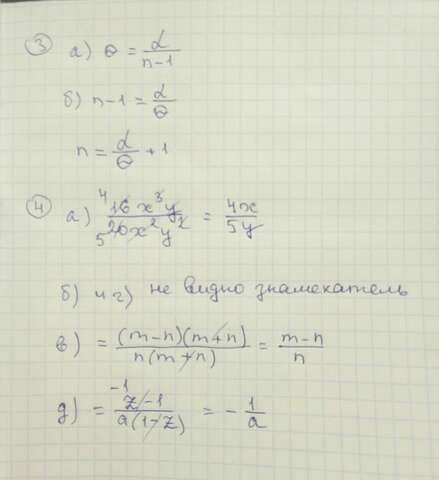 ③ а) θ = α/(n-1)
б) n-1 = α/θ
n = α/θ + 1
④ а) ⁴16x³y/₅20x²y² = 4x/5y
б) и г) не видно знамекатель
в) = (m-n)(m+n)/n(m+n) = m-n/n
д) = ⁻¹z-1/a(1-z) = - 1/a